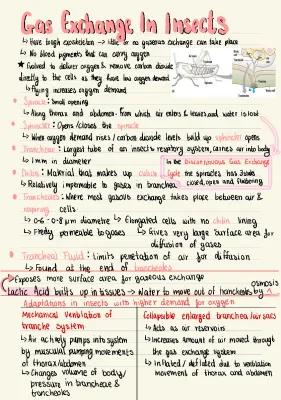 Gas Exchange In Insects
↳ Have tough exoskeleton → little or no gaseous exchange can take place
↳ No blood pigments that can carry oxygen
★ Evolved to deliver oxygen & remove carbon dioxide
directly to the cells as they have low oxygen demand
↳ Flying increases oxygen demand
• Spiracle: Small opening
↳ Along thorax and abdomen. From which air enters & leaves, and water is lost
• Spinchter: Opens/closes the spiracle
↳ When oxygen demand rises / carbon dioxide levels build up sphincter opens
• Tracheae: Largest tube of an insects respitory system, carries air into body
↳ 1mm in diameter
In the Discontinuous Gas Exchange
Cycle the spiracles has 3 states
closed, open and fluttering
• Chitin: Material that makes up cuticle
↳ Relatively impermable to gases in trancheae
• Trancheoles: Where most gaseous exchange takes place between air &
respiring cells
↳ 0.6-0.8 µm diametre ↳ Elongated cells with no chitin lining
↳ Freely permeable to gases ↳ Gives very large surface area for
diffusion of gases
• Tracheal Fluid: Limits penetration of air for diffusion
↳ Found at the end of trancheoles
↳ Exposes more surface area for gaseous exchange
Lactic Acid builds up in tissues → Water to move out of trancheoles by ^ osmosis
Adaptations in insects with higher demand for oxygen
Mechanical Ventilation of
tranche System
↳ Air actively pumps into system
by muscular pumping movements
of thorax/abdomen
↳ Changes volume of body/
pressure in trancheae &
troncheoles
Collapsible enlarged tranchea/air sacs
↳ Acts as air reservoirs
↳ Increases amount of air moved through
the gas exchange system
↳ Inflated / deflated due to ventilation
movements of thorax and abdomen